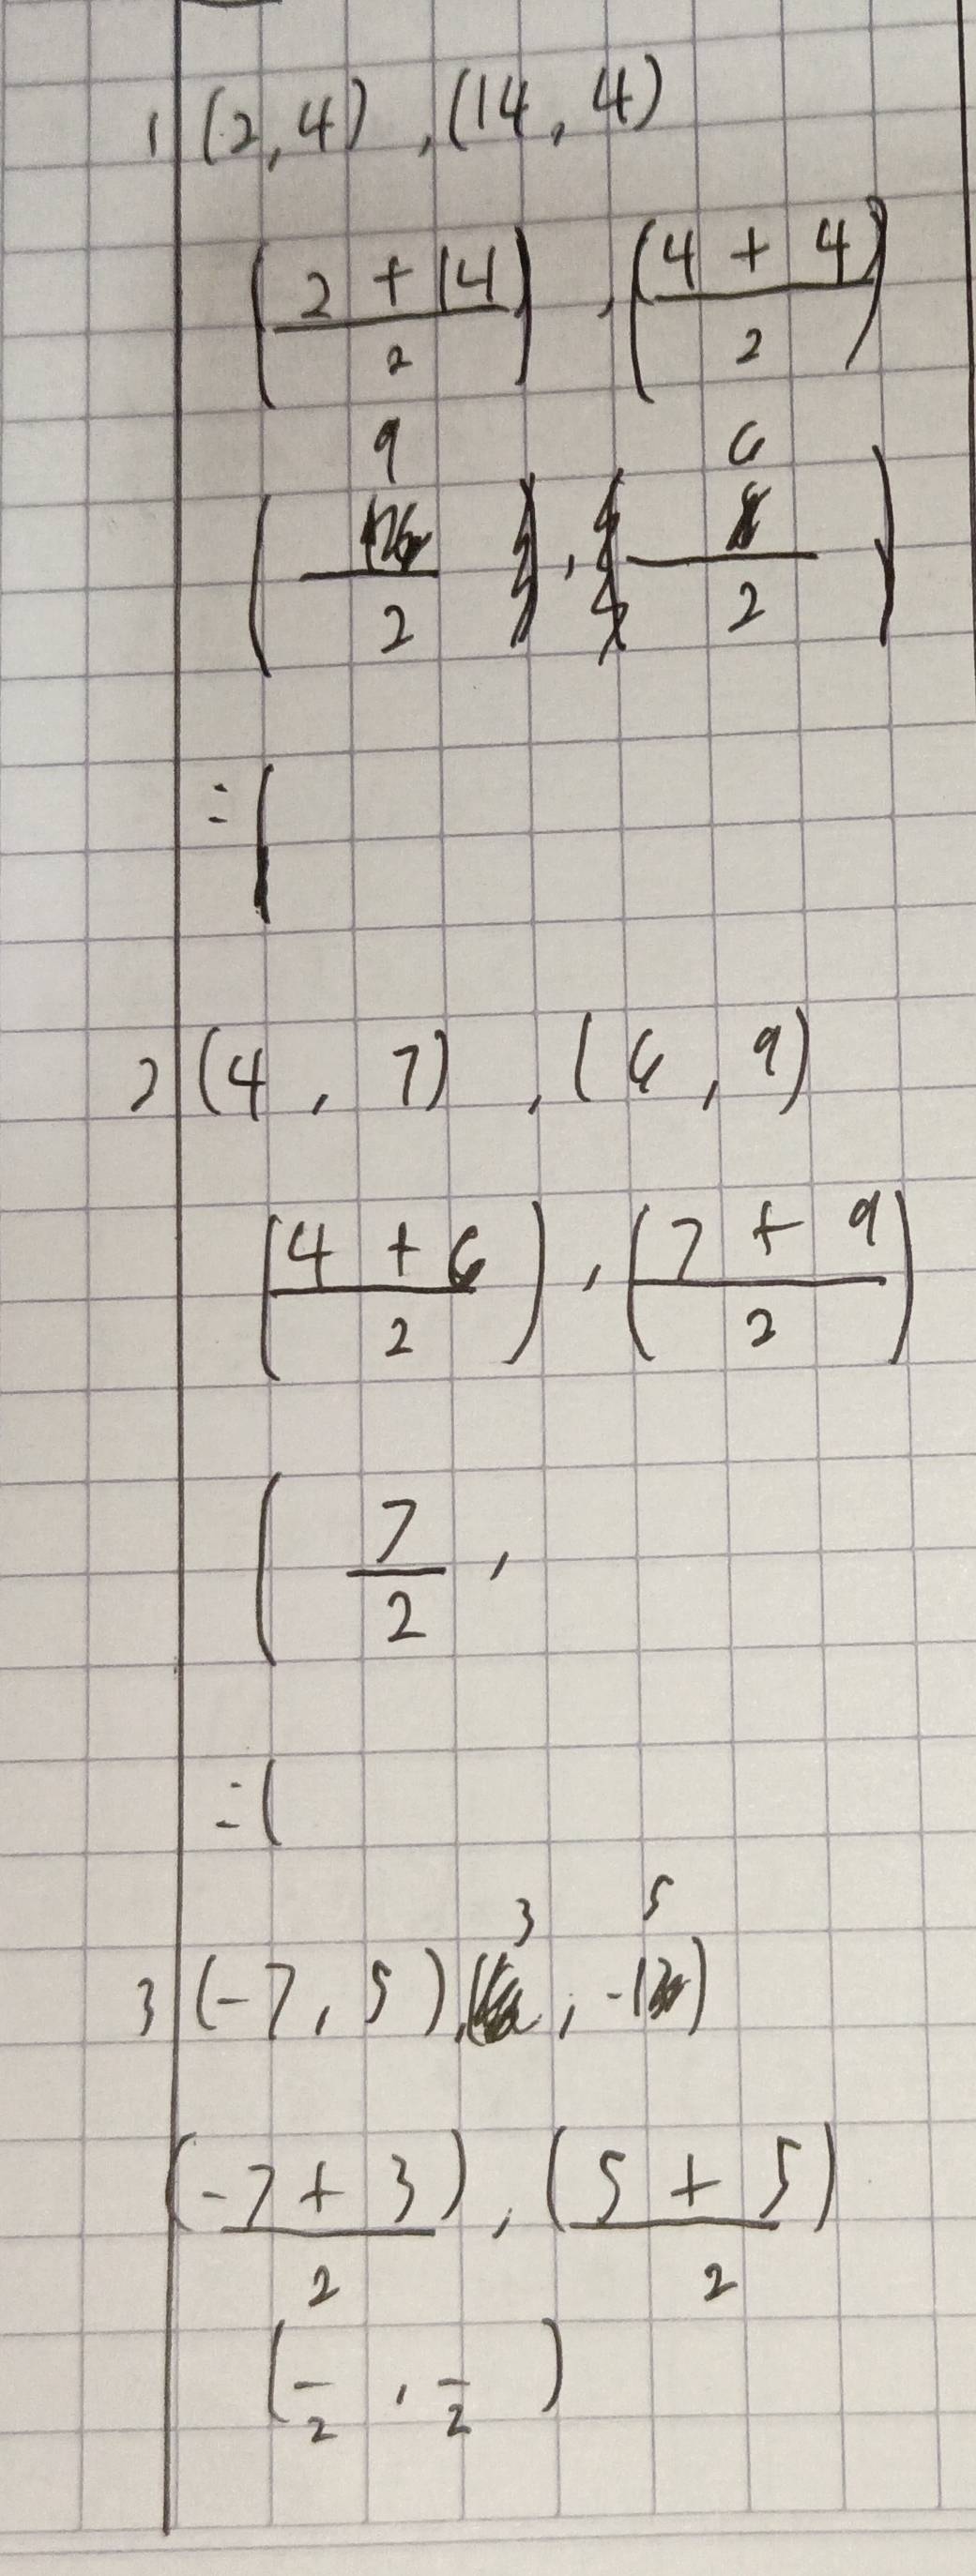 1 (2, 4), (14, 4)
(2 + 14 / 2), (4 + 4 / 2)
9 6
( / 2 , 8 / 2 )
= (
2 (4, 7), (6, 9)
(4 + 6 / 2), (7 + 9 / 2)
(7 / 2,
= (
3 5
3 (-7, 5), ( , -1 )
(-7 + 3 / 2), (5 + 5 / 2)
( / 2, / 2 )